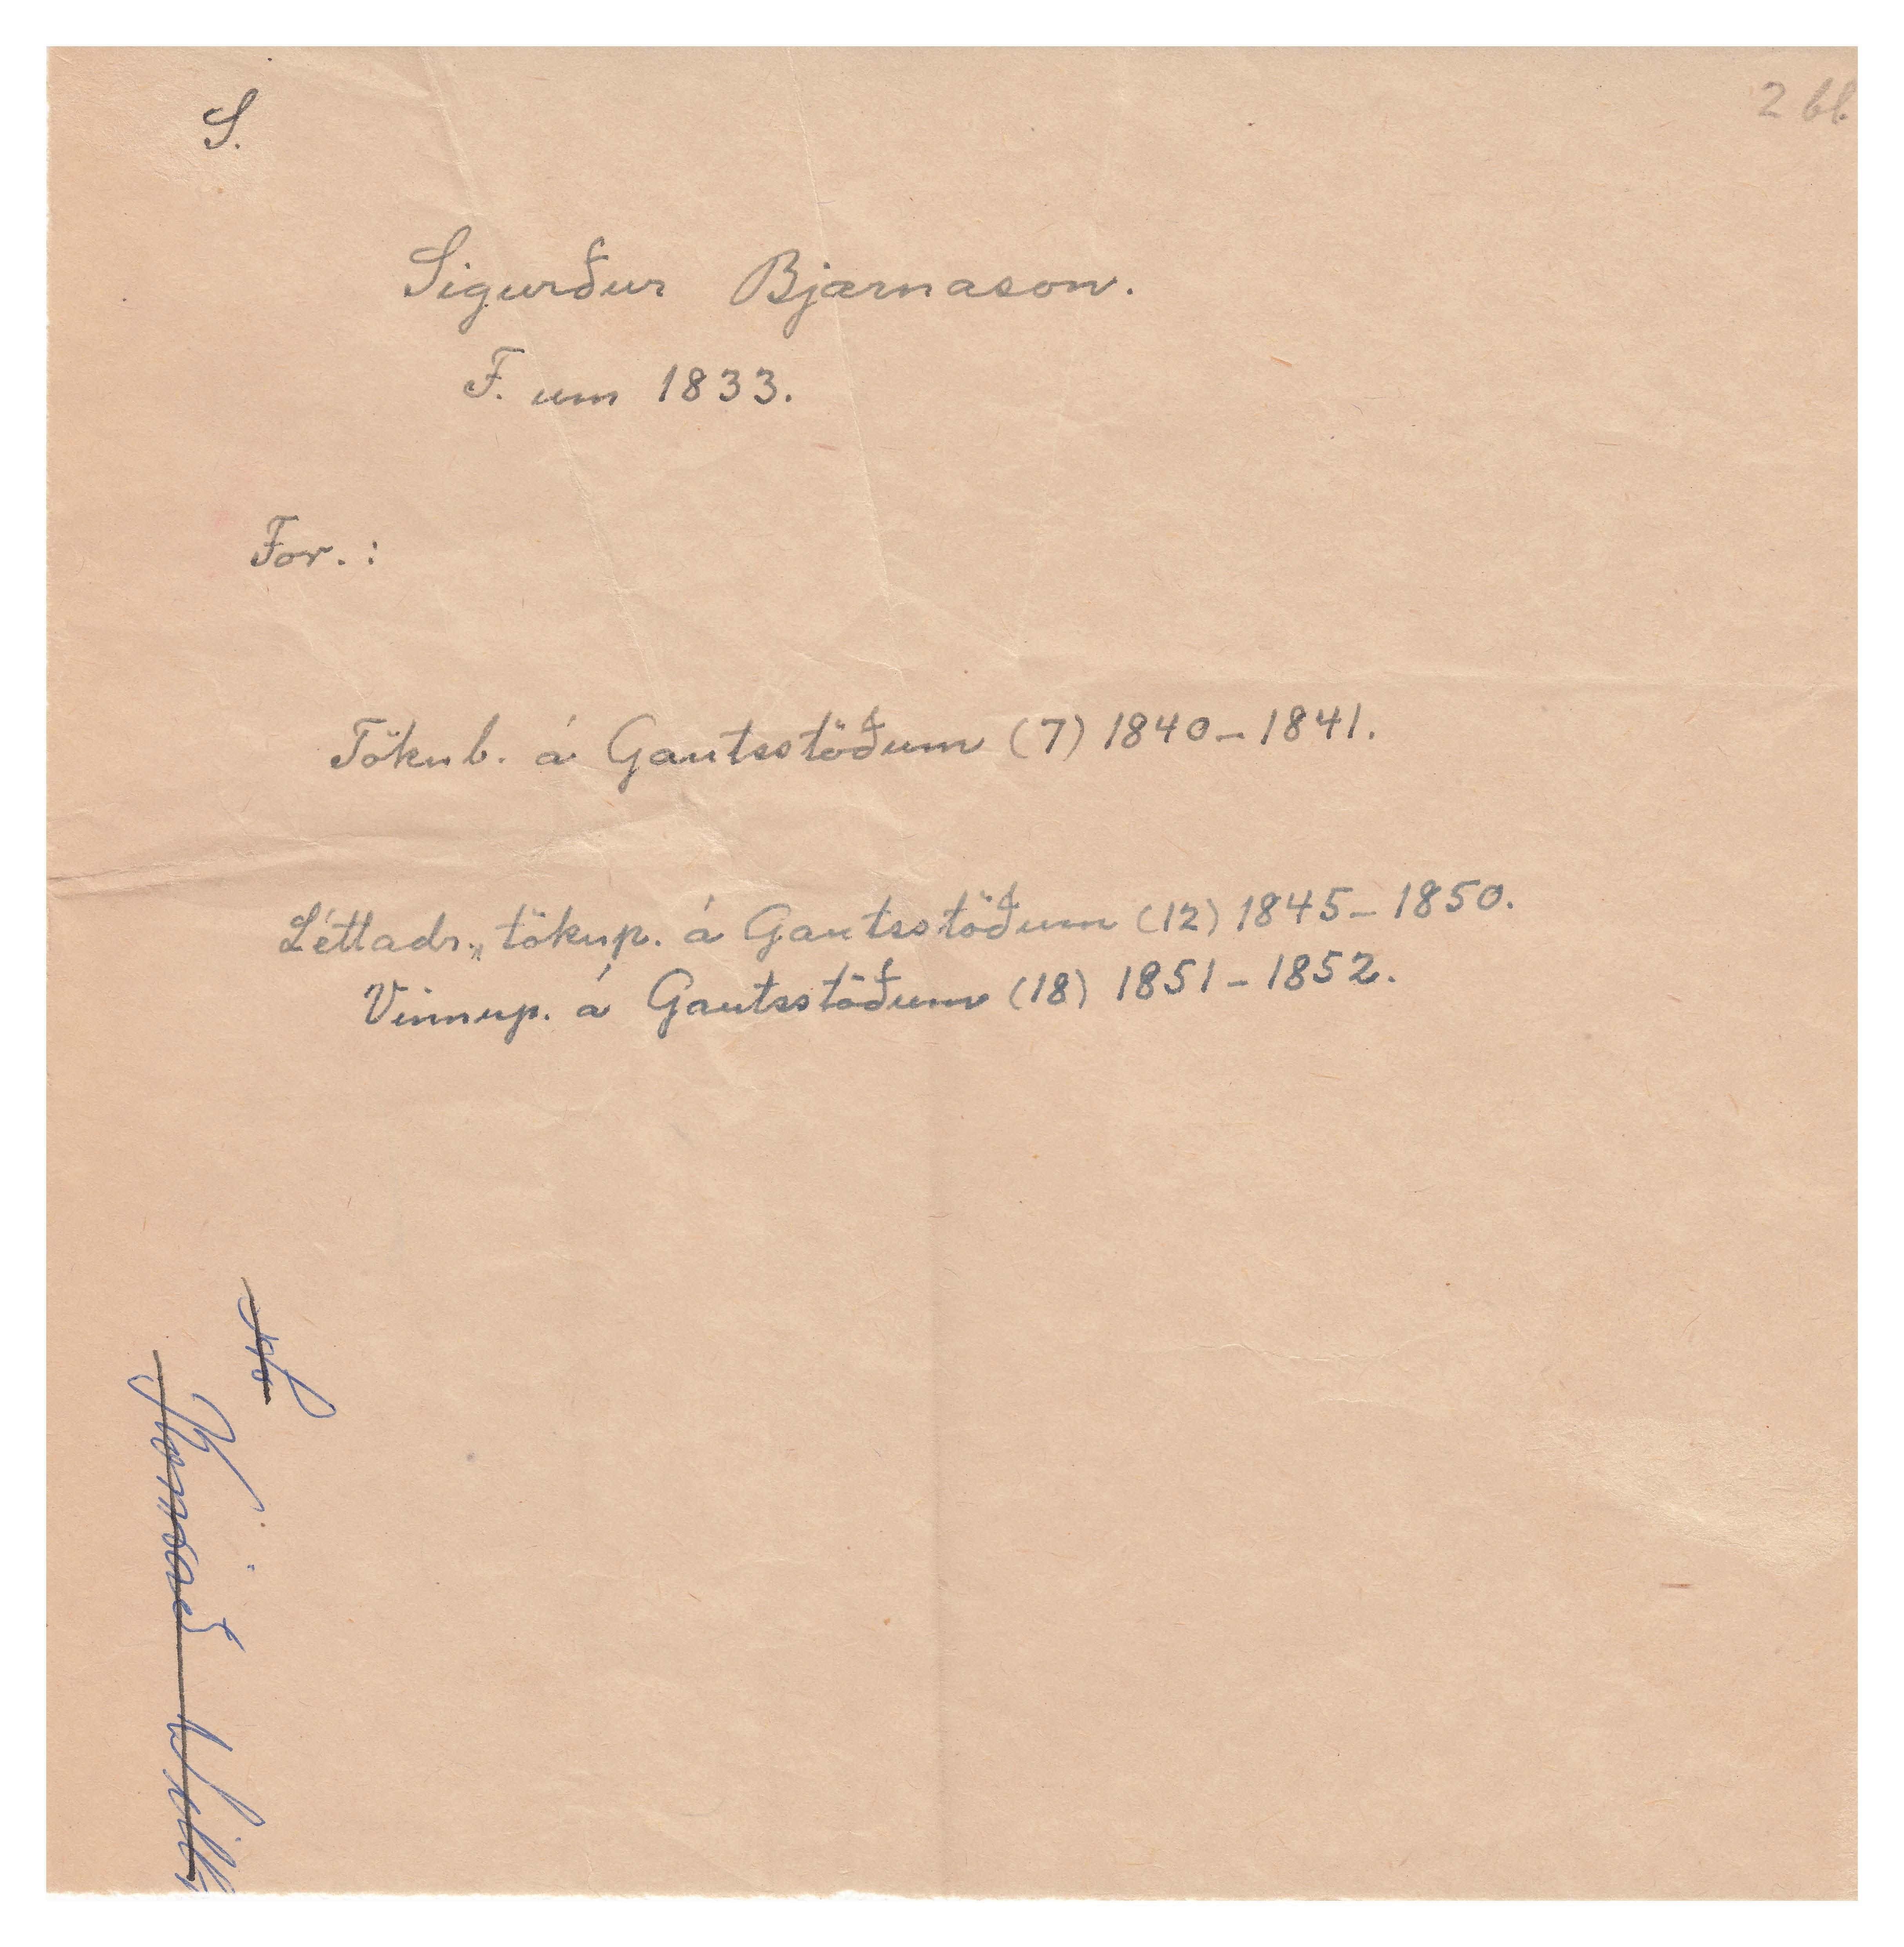 S.
2 bl.
Sigurður Bjarnason.
F. um 1833.
For.:
Tökub. á Gautsstöðum (7) 1840-1841.
Léttadr.,, tökup. á Gautsstöðum (12) 1845-1850.
Vinnup. á Gautsstöðum (18) 1851-1852.